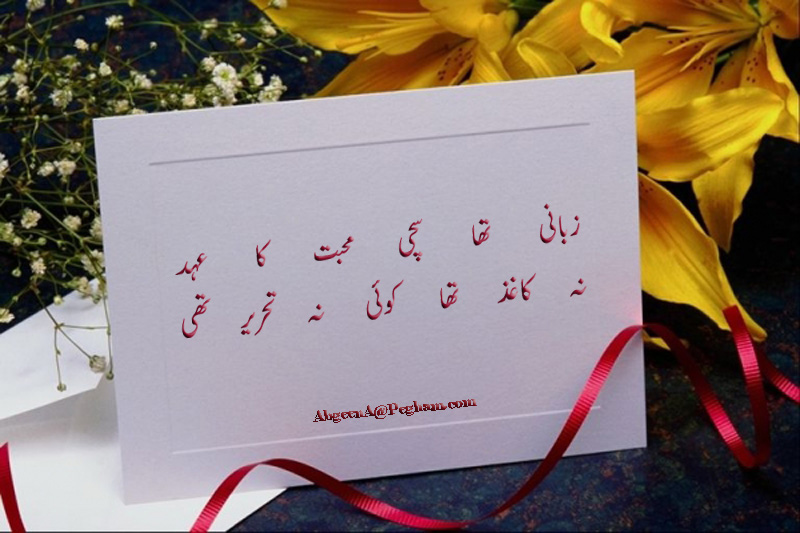 زبانی تھا سچی محبت کا عہد
نہ کاغذ تھا کوئی نہ تحریر تھی
AbgeenA@Pegham.com